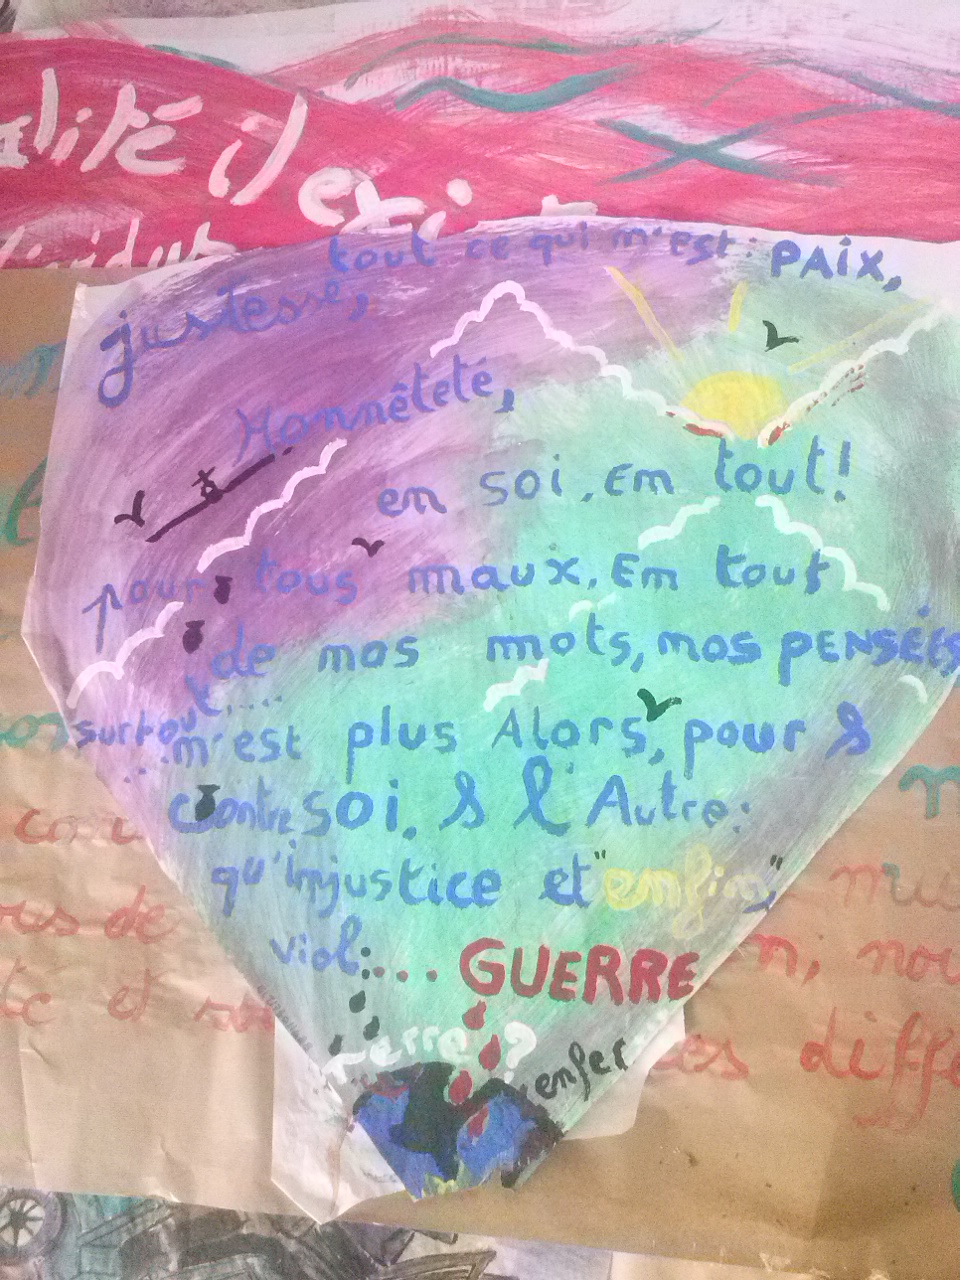 alité il
tout ce qui m'est: PAix,
justesse,
Honnêteté,
en soi, Em tout!
pour tous maux, Em tout
de mos mots, mos PENSÉES
surtout....
...m'est plus Alors, pour &
contre soi, & l'Autre:
qu'injustice et "enfin,"
viol:... GUERRE
Terre?
enfer
ous de
n, nou
et
es diffé